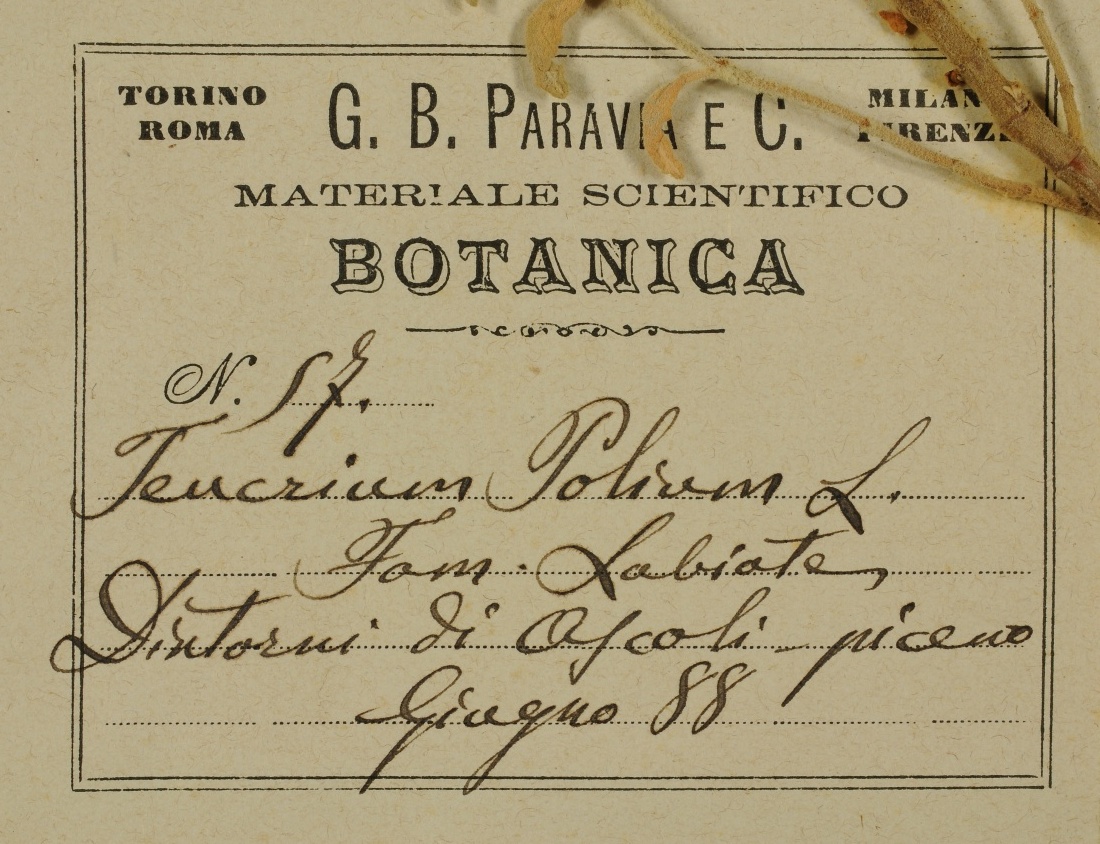 TORINO G. B. PARAVIA E C. MILANO
ROMA FIRENZE
MATERIALE SCIENTIFICO
BOTANICA
N. 57.
Teucrium Polium L.
Fam. Labiate
Dintorni di Ascoli-piceno
Giugno 88